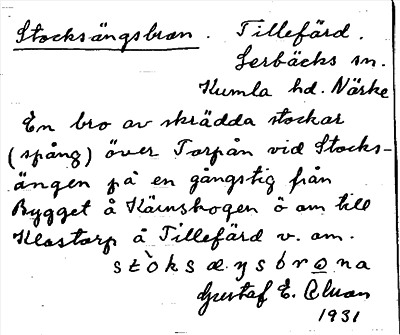 Stocksängsbron. Tillefärd.
Lerbäcks sn.
Kumla hd. Närke
En bro av skrädda stockar
(spång) över Torpån vid Stocks-
ängen på en gångstig från
Bygget å Kärnskogen ö om till
Klastorp å Tillefärd v. om.
Gustaf E.
1931